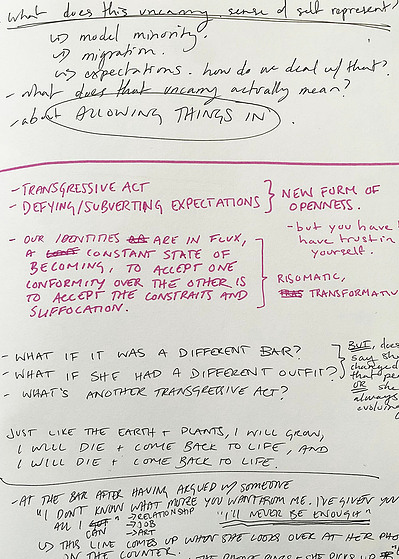 what does this uncanny sense of self represent?
↳ model minority.
↳ migration.
↳ expectations. how do we deal w/ that?
- what does that uncanny actually mean?
- about ALLOWING THINGS IN.
- TRANSGRESSIVE ACT
- DEFYING/SUBVERTING EXPECTATIONS } NEW FORM OF OPENNESS.
- but you have
have trust in
yourself.
- OUR IDENTITIES ARE IN FLUX,
A CONSTANT STATE OF
BECOMING, TO ACCEPT ONE
CONFORMITY OVER THE OTHER IS
TO ACCEPT THE CONSTRAITS AND
SUFFOCATION.
RISOMATIC,
TRANSFORMATIV
- WHAT IF IT WAS A DIFFERENT BAR?
- WHAT IF SHE HAD A DIFFERENT OUTFIT?
- WHAT'S ANOTHER TRANSGRESSIVE ACT?
BUT, does
say she
changed
that pe
OR she
always
evolving
JUST LIKE THE EARTH + PLANTS, I WILL GROW,
I WILL DIE + COME BACK TO LIFE, AND
I WILL DIE + COME BACK TO LIFE.
- AT THE BAR AFTER HAVING ARGUED W/ SOMEONE
"I DON'T KNOW WHAT MORE YOU WANT FROM ME. I'VE GIVEN YOU
ALL I GOT → RELATIONSHIP "I'LL NEVER BE ENOUGH"
CAN → JOB
→ ART
↳ THIS LINE COMES UP WHEN SHE LOOKS OVER AT HER PHO
IN THE COUNTER.